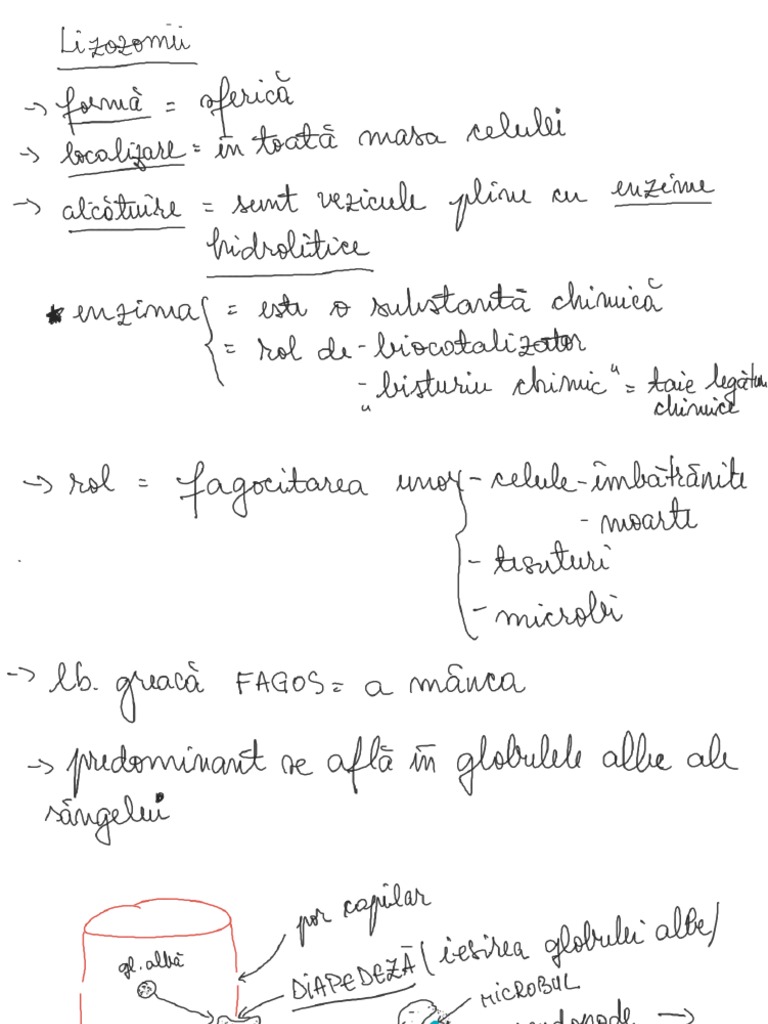 Lizozomii
-> formă = sferică
-> localizare = în toată masa celulei
-> alcătuire = sunt vezicule pline cu enzime
hidrolitice
* enzima { = este o substantă chimică
= rol de - biocatalizator
- "bisturiu chimic" = taie legături
chimice
-> rol = fagocitarea unor { - celule - îmbătrânite
- moarte
- tesuturi
- microbi
-> lb. greacă FAGOS = a mânca
-> predominant se află în globulele albe ale
sângelui
por capilar
gl. albă
DIAPEDEZĂ (iesirea globulei albe)
MICROBUL